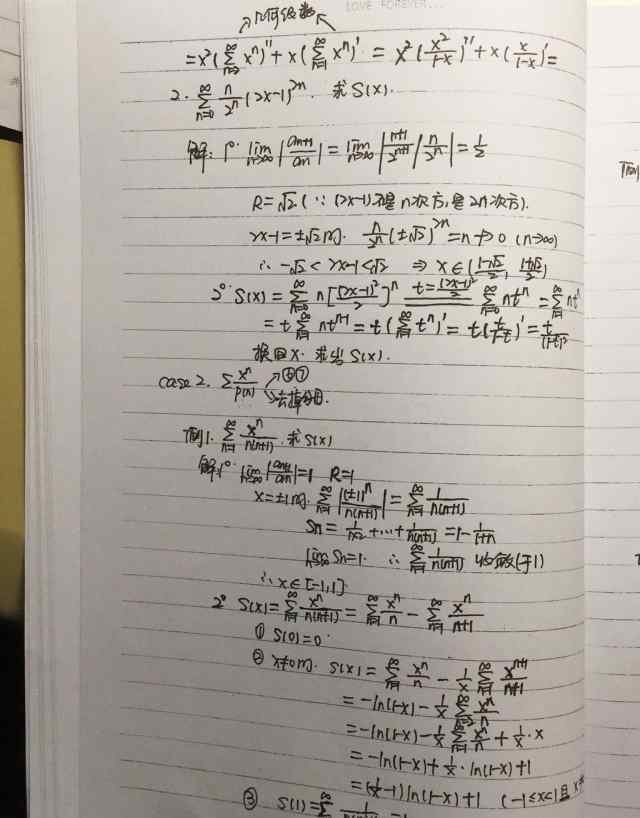 LOVE FOREVER...
几何级数
= x²(∑_{n=2}^∞ xⁿ)'' + x(∑_{n=1}^∞ xⁿ)' = x²(x²/(1-x))'' + x(x/(1-x))' =
2. ∑_{n=0}^∞ n/2ⁿ (2x-1)²ⁿ. 求S(x).
解: 1° lim_{n→∞} |a_{n+1}/a_n| = lim_{n→∞} |(n+1)/2ⁿ⁺¹ / n/2ⁿ| = 1/2
R=√2 (∵ (2x-1)不是n次方,是2n次方).
2x-1=±√2时. n/2ⁿ (±√2)²ⁿ = n ↛ 0 (n→∞)
∴ -√2 < 2x-1 < √2 ⇒ x∈((1-√2)/2, (1+√2)/2)
2° S(x) = ∑_{n=0}^∞ n[(2x-1)²/2]ⁿ t=(2x-1)²/2 ∑_{n=0}^∞ ntⁿ = ∑_{n=1}^∞ ntⁿ
= t∑_{n=1}^∞ ntⁿ⁻¹ = t(∑_{n=1}^∞ tⁿ)' = t(t/(1-t))' = t/(1-t)²
换回x. 求出S(x).
case 2. ∑ xⁿ/p(n) ↗⑥⑦
↘去掉分母.
例1. ∑_{n=1}^∞ xⁿ/n(n+1). 求S(x)
解: 1° lim_{n→∞} |a_{n+1}/a_n| = 1 R=1
x=±1时. ∑_{n=1}^∞ |(±1)ⁿ/n(n+1)| = ∑_{n=1}^∞ 1/n(n+1)
Sn = 1/1×2 +...+ 1/n(n+1) = 1 - 1/(1+n)
lim_{n→∞} Sn=1. ∴ ∑_{n=1}^∞ 1/n(n+1) 收敛(于1)
∴ x∈[-1,1]
2° S(x) = ∑_{n=1}^∞ xⁿ/n(n+1) = ∑_{n=1}^∞ xⁿ/n - ∑_{n=1}^∞ xⁿ/(n+1)
① S(0)=0.
② x≠0时. S(x) = ∑_{n=1}^∞ xⁿ/n - 1/x ∑_{n=1}^∞ xⁿ⁺¹/(n+1)
= -ln(1-x) - 1/x ∑_{n=2}^∞ xⁿ/n
= -ln(1-x) - 1/x ∑_{n=1}^∞ xⁿ/n + 1/x · x
= -ln(1-x) + 1/x · ln(1-x) + 1
= (1/x - 1)ln(1-x) + 1 (-1≤x<1且x≠
③ S(1) = ∑_{n=1}^∞
例